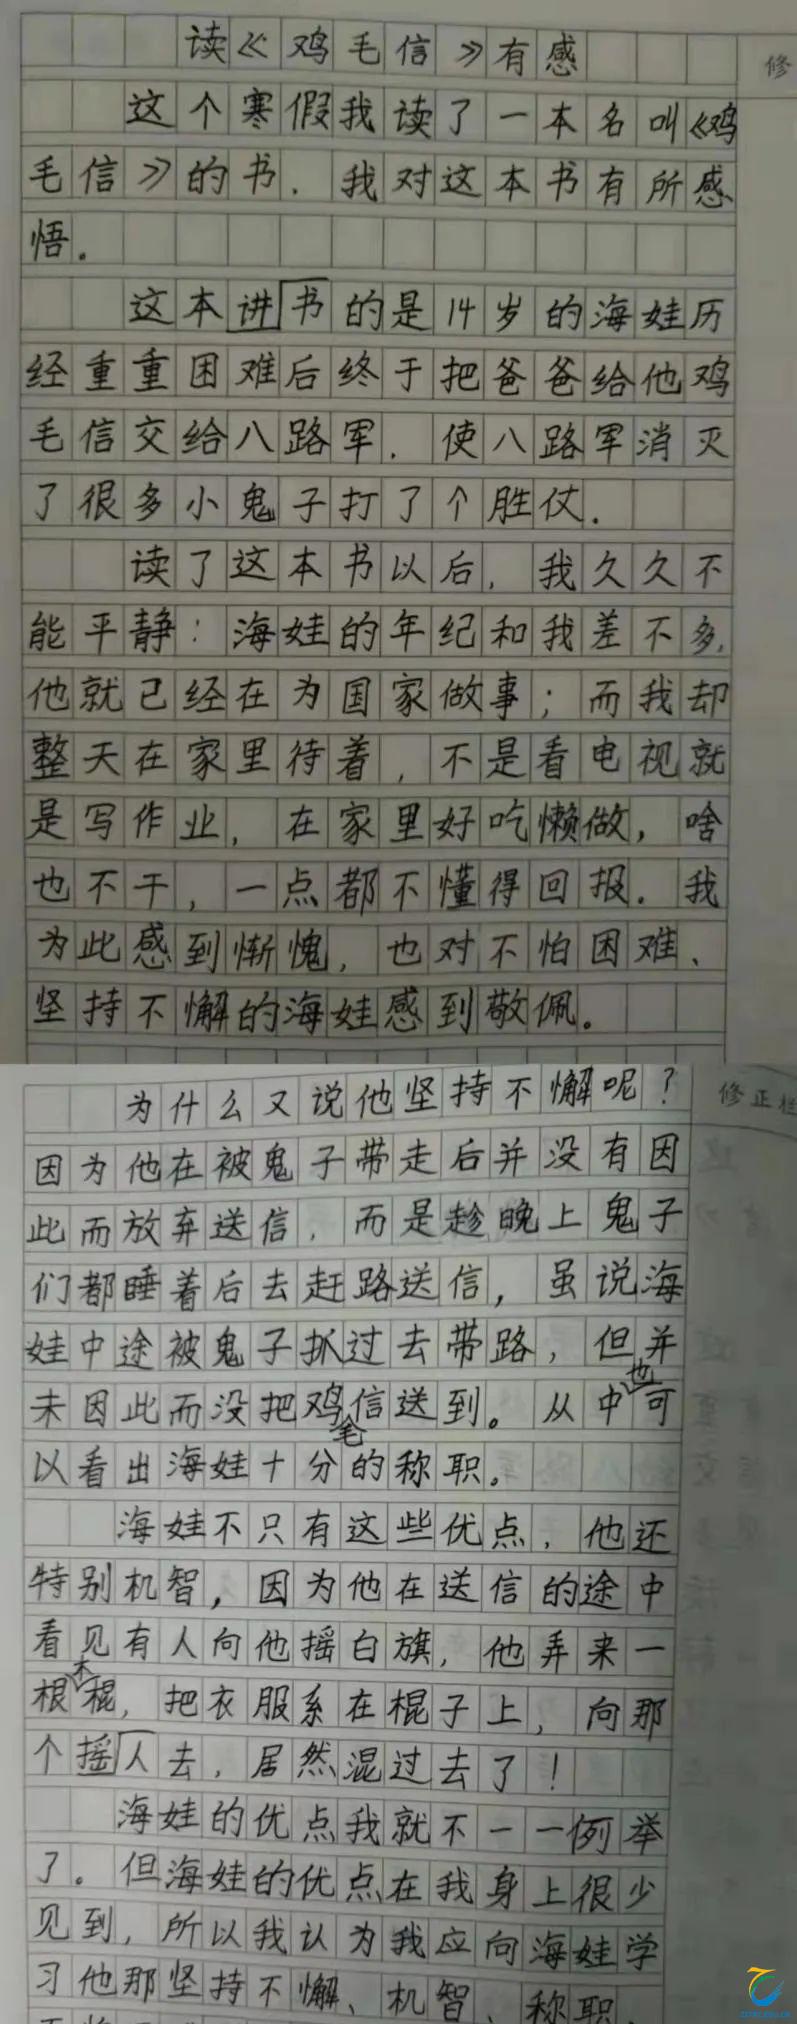 读《鸡毛信》有感
修
这个寒假我读了一本名叫《鸡
毛信》的书．我对这本书有所感
悟。
这本讲书的是14岁的海娃历
经重重困难后终于把爸爸给他鸡
毛信交给八路军．使八路军消灭
了很多小鬼子打了个胜仗．
读了这本书以后，我久久不
能平静：海娃的年纪和我差不多，
他就已经在为国家做事；而我却
整天在家里待着，不是看电视就
是写作业，在家里好吃懒做，啥
也不干，一点都不懂得回报．我
为此感到惭愧，也对不怕困难、
坚持不懈的海娃感到敬佩。
为什么又说他坚持不懈呢？
修正栏
因为他在被鬼子带走后并没有因
此而放弃送信，而是趁晚上鬼子
们都睡着后去赶路送信，虽说海
娃中途被鬼子抓过去带路，但并
未因此而没把鸡毛信送到。从中也可
以看出海娃十分的称职。
海娃不只有这些优点，他还
特别机智，因为他在送信的途中
看见有人向他摇白旗，他弄来一
根木棍，把衣服系在棍子上，向那
个摇人去，居然混过去了！
海娃的优点我就不一一例举
了。但海娃的优点在我身上很少
见到，所以我认为我应向海娃学
习他那坚持不懈、机智、称职、